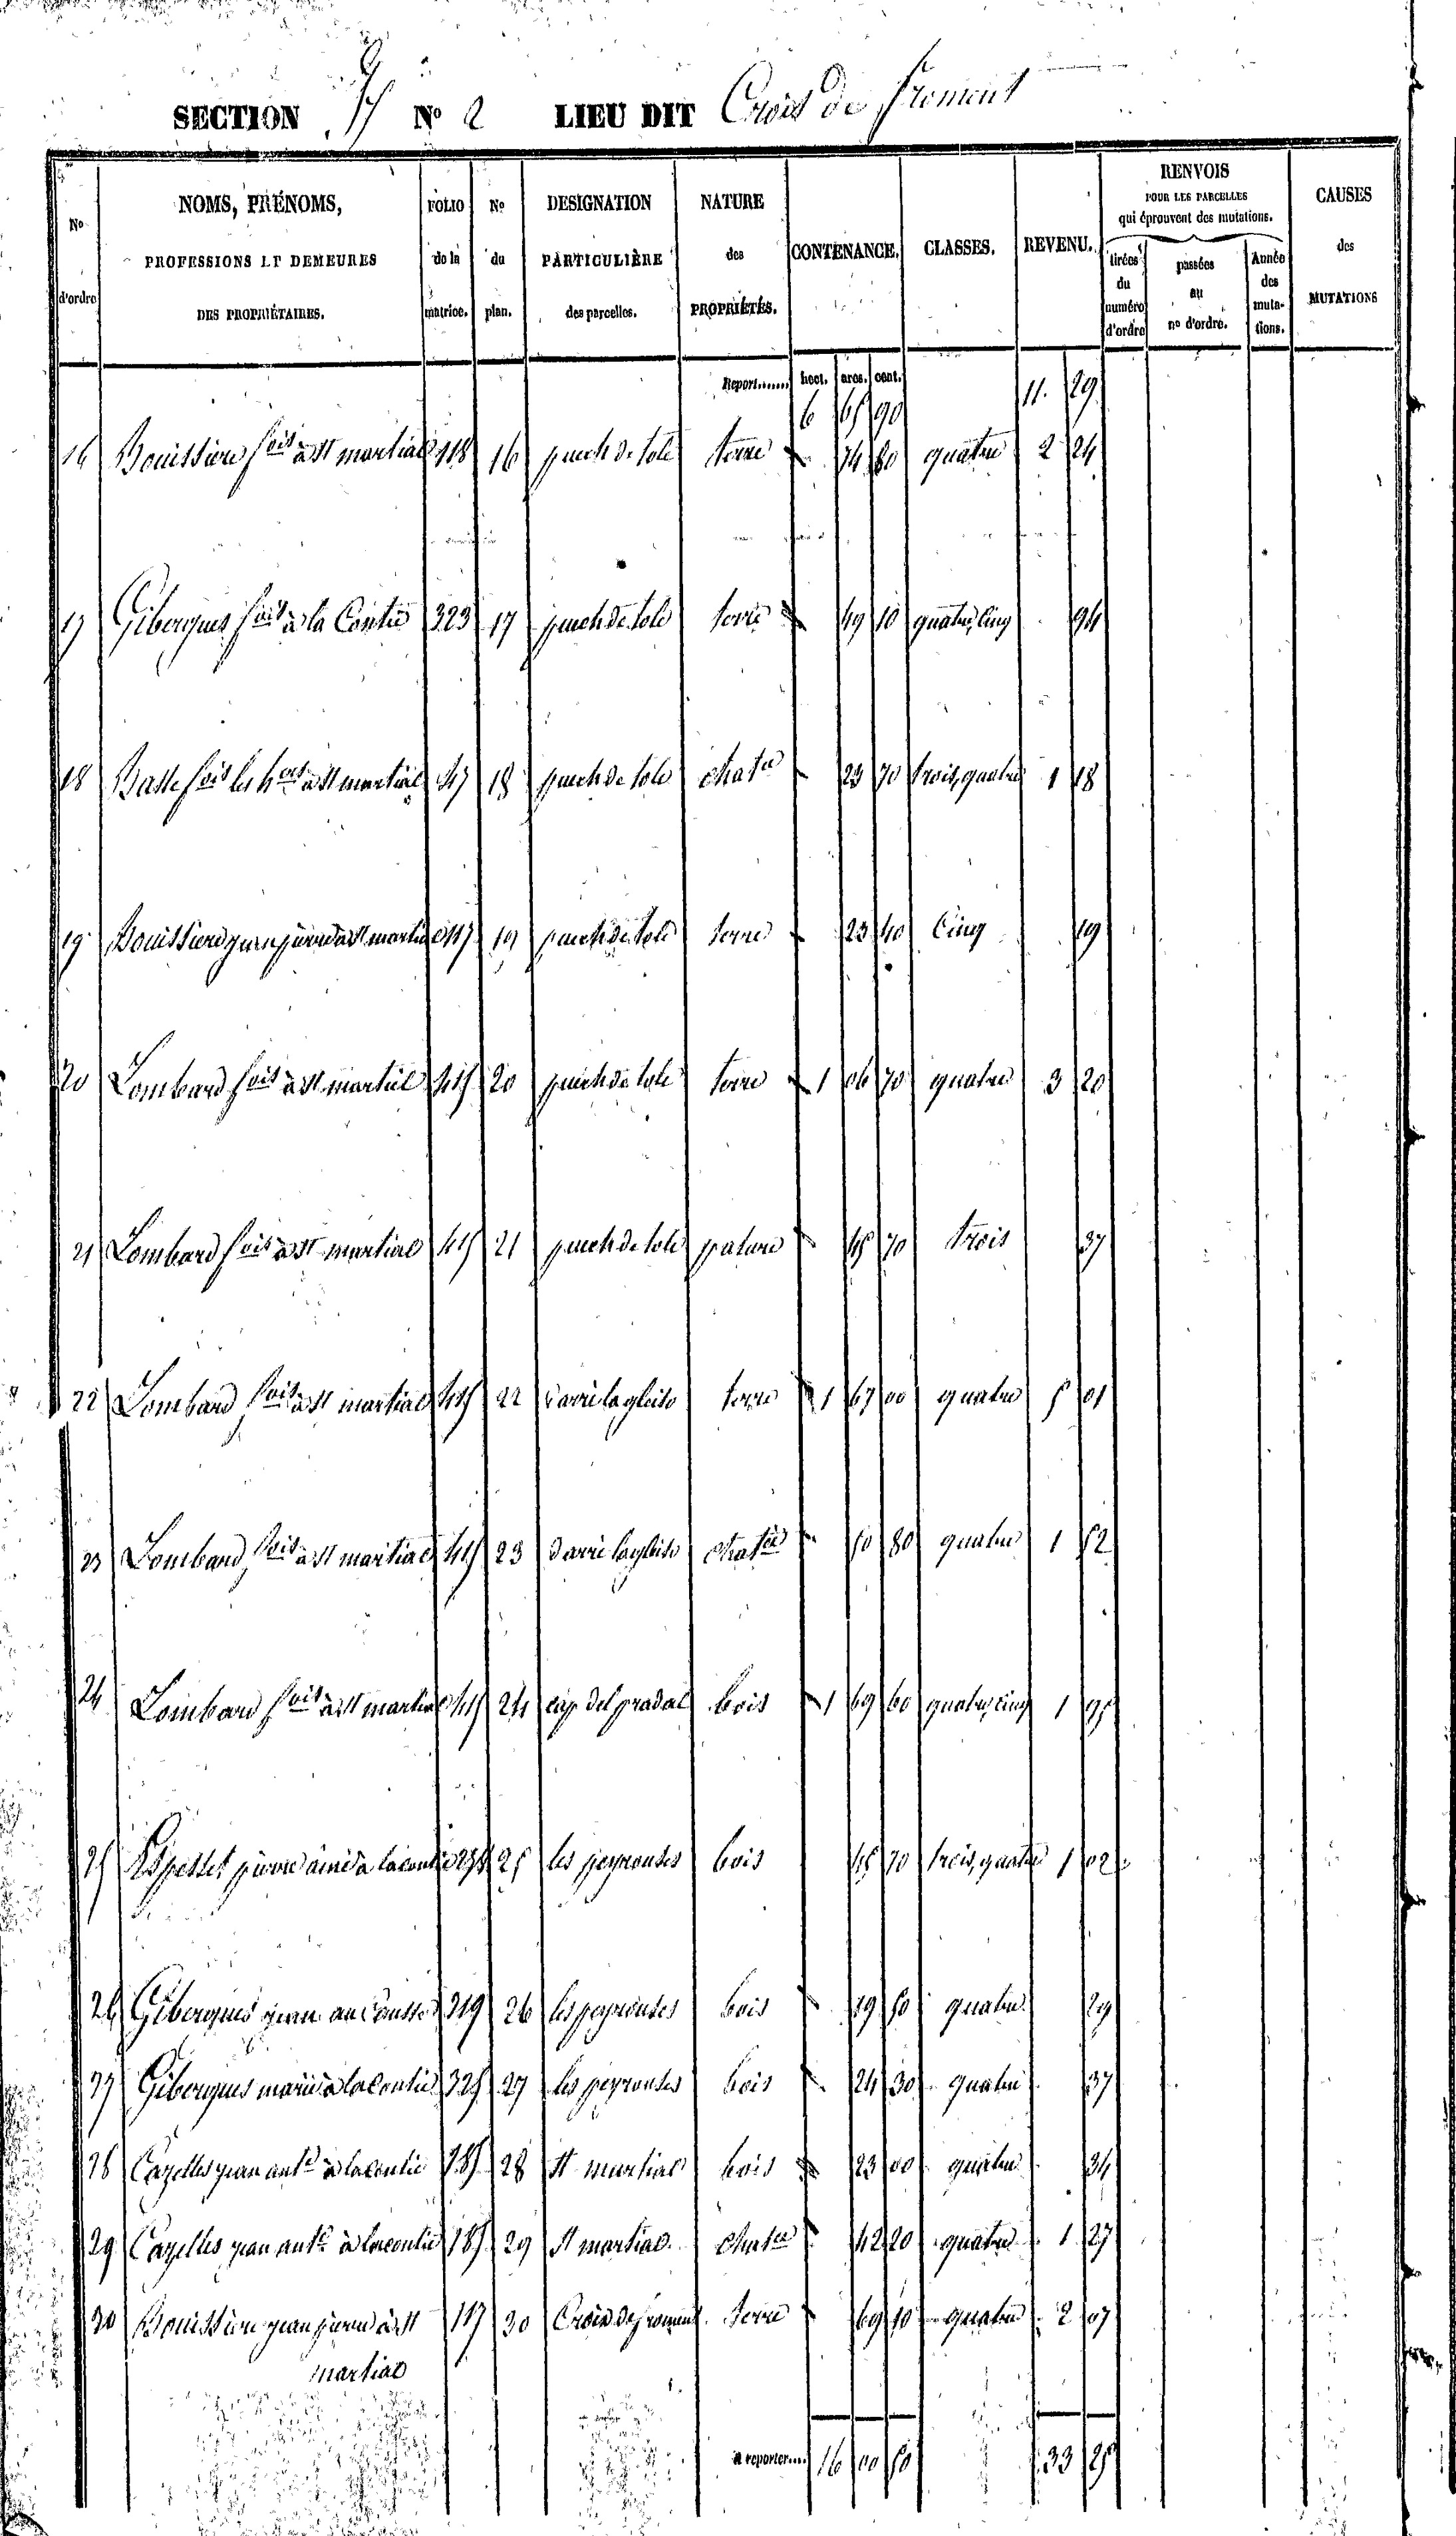 SECTION H No 2 LIEU DIT Croix de froment
No d'ordre
NOMS, PRÉNOMS, PROFESSIONS ET DEMEURES DES PROPRIÉTAIRES.
FOLIO de la matrice.
No du plan.
DESIGNATION PARTICULIÈRE des parcelles.
NATURE des PROPRIÉTÉS.
CONTENANCE.
CLASSES.
REVENU.
RENVOIS POUR LES PARCELLES qui éprouvent des mutations.
tirées du numéro d'ordre
passées au no d'ordre.
Année des mutations.
CAUSES des MUTATIONS
Report...... hect. ares. cent.
6 65 90 11. 29
16 Bouissiere fois à St martial 118 16 puech de tole terre 74 80 quatre 2 24
17 Gibergues fois à la Contie 323 17 puech de tole terre 49 10 quatre, cinq 94
18 Basse fois les hers à St martial 47 18 puech de tole chatre 23 70 trois, quatre 1 18
19 Bouissiere jean pierre à St martial 117 19 puech de tole terre 23 40 Cinq 19
20 Lombard fois à St martial 415 20 puech de tole terre 1 06 70 quatre 3 20
21 Lombard fois à St martial 415 21 puech de tole pature 45 70 trois 37
22 Lombard fois à St martial 415 22 darrè lagleiso terre 1 67 00 quatre 5 01
23 Lombard fois à St martial 415 23 darrè lagleiso chatre 50 80 quatre 1 52
24 Lombard fois à St martial 415 24 cap del pradal bois 1 69 60 quatre, cinq 1 95
25 Espesset pierre ainé à lacontie 25 les peyrouses bois 45 70 trois, quatre 1 02
26 Gibergues jean au Causse 319 26 les peyrouses bois 19 50 quatre 29
27 Gibergues marie à lacontie 325 27 les peyrouses bois 24 30 quatre 37
28 Cazelles jean ante à lacontie 185 28 St martial bois 23 00 quatre 34
29 Cazelles jean ante à lacontie 185 29 St martial chatre 42 20 quatre 1 27
30 Bouissiere jean pierre à St 117 30 Croix de froment terre 69 10 quatre 2 07
martial
A reporter.... 16 00 50 33 25